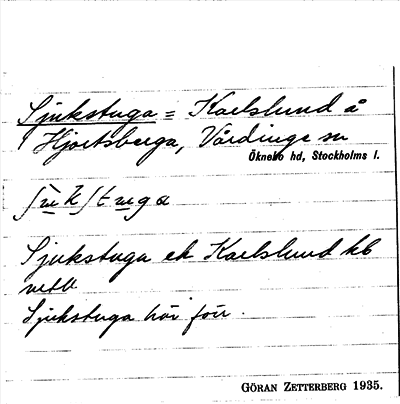 Sjukstuga = Karlslund å
Hjortsberga, Vårdinge sn
Öknebo hd, Stockholms l.
Sjukstuga ek Karlslund kb
vetb
Sjukstuga hör förr.
GÖRAN ZETTERBERG 1935.